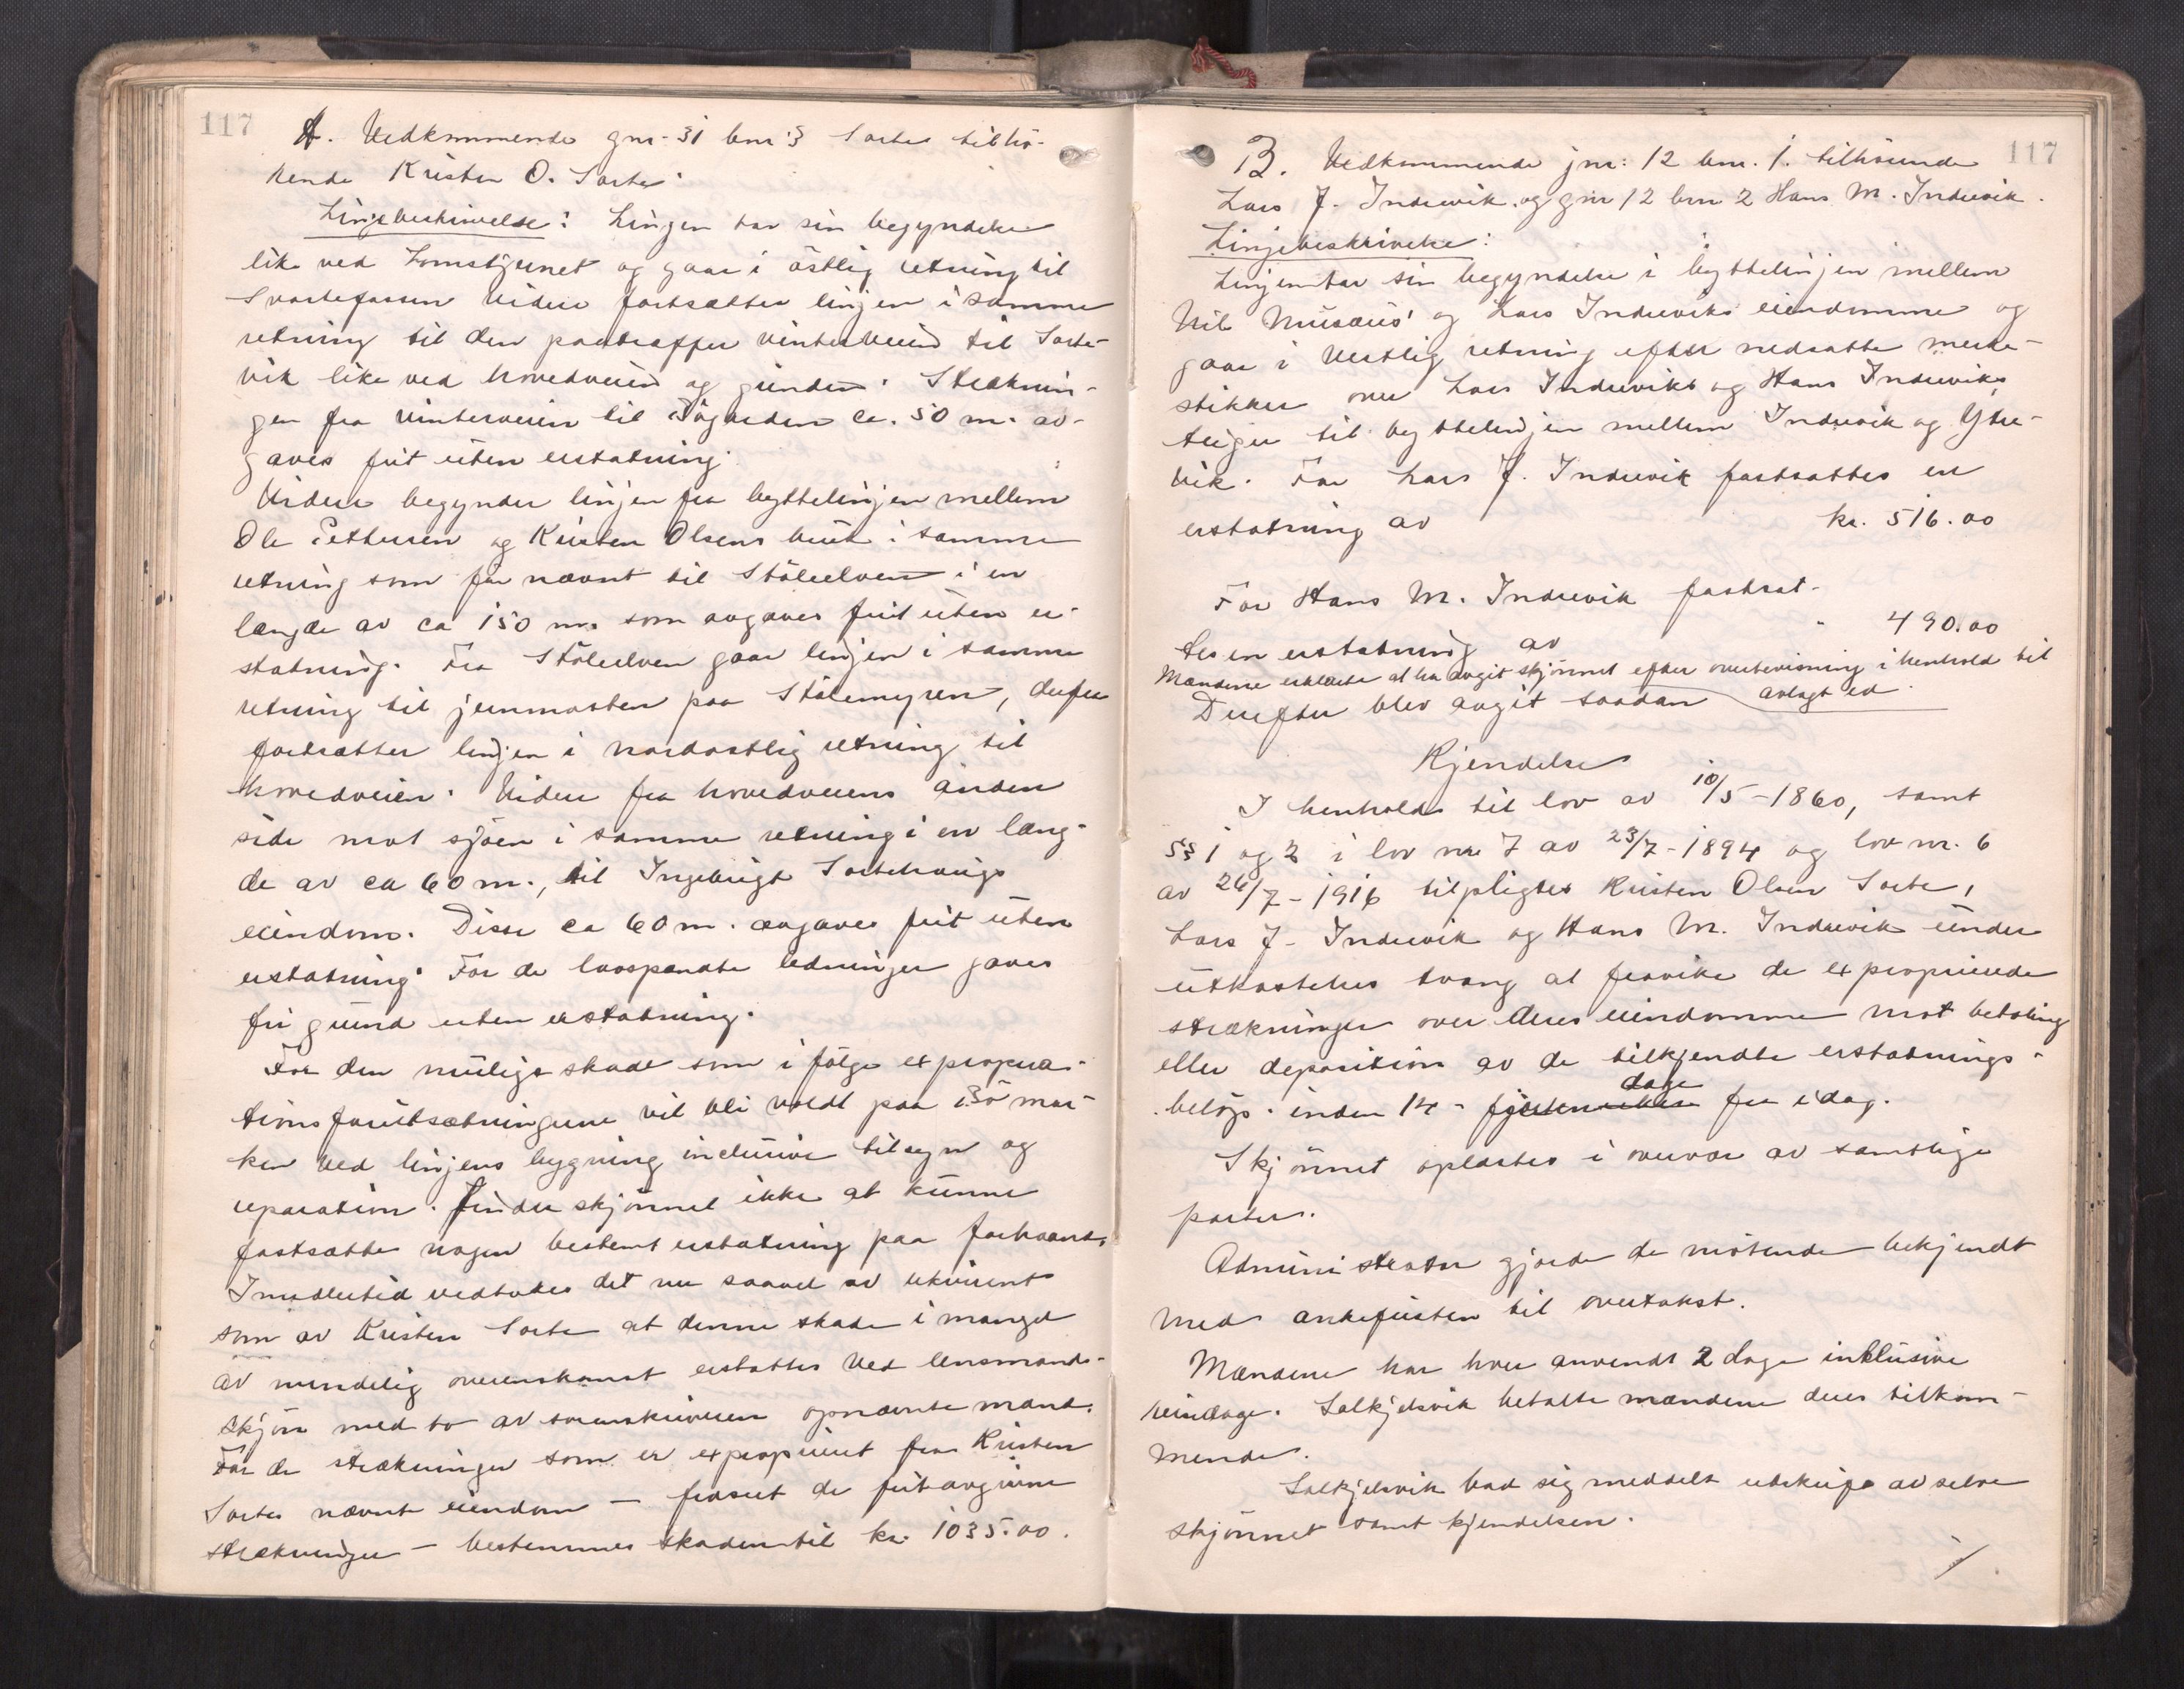 117
A. Vedkommende gnr. 31 bnr 3 Sorte tilhö-
rende Kristen O. Sorte.
Linjebeskrivelse: Linjen tar sin begyndelse
like ved Lomstjernet og gaar i östlig retning til
Svartefossen videre fortsætter linjen i samme
retning til den paatræffer vinterveien til Sorte-
vik like ved hovedveien og grinden. Stræknin-
gen fra vinterveien til Bögarden ca. 50 m. av-
gaves frit uten erstatning.
Videre begynder linjen fra byttelinjen mellem
Ole Pettersen og Kristen Olsens bruk i samme
retning som för nævnt til Stöleelven i en
længde av ca 150 m. som avgaves frit uten er-
statning. Fra Stöleelven gaar linjen i samme
retning til jernmasten paa Stölemyren, derfra
fortsætter linjen i nordostlig retning til
hovedveien. Videre fra hovedveiens anden
side mot sjöen i samme retning i en læng-
de av ca 60 m., til Ingebrigt Sortehaugs
eiendom. Disse ca 60 m. avgaves frit uten
erstatning. For de lavspændte ledninger gaves
fri grund uten erstatning.
For den mulige skade som i fölge expropria-
tionsforutsætningene vil bli voldt paa indmar-
ken ved linjens bygning inclusive tilsyn og
reparation. finder skjönnet ikke at kunne
fastsætte nogen bestemt erstatning paa forhaand.
Imidlertid vedtokes det nu saavel av rekvirent
som av Kristen Sorte at denne skade i mangel
av mindelig overenskomst erstattes ved lensmands-
skjön med to av sorenskriveren opnævnte mænd.
For de strækninger som er expropriert fra Kristen
Sortes nævnte eiendom – fraseet de frit avgivne
strækninger – bestemmes skaden til kr. 1035.00.
117
B. Vedkommende gnr: 12 bnr. 1. tilhörende
Lars J. Indrevik og gnr 12 bnr 2 Hans M. Indrevik.
Linjebeskrivelse:
Linjen tar sin begyndelse i byttelinjen mellem
Nils Musæus' og Lars Indreviks eiendomme og
gaar i vestlig retning efter nedsatte merke-
stikker over Lars Indreviks og Hans Indreviks
teiger til byttelinjen mellem Indrevik og Ytre-
vik. For Lars J. Indrevik fastsattes en
erstatning av kr. 516.00
For Hans M. Indrevik fastsat-
tes en erstatning av " 490.00
Mændene erklærte at ha avgit skjönnet efter overbevisning i henhold til
avlagt ed.
Derefter blev avgit saadan
Kjendelse
I henhold til lov av 10/5-1860, samt
§§ 1 og 2 i lov nr 7 av 23/7-1894 og lov nr. 6
av 26/7-1916 tilpligtes Kristen Olsen Sorte,
Lars J. Indrevik og Hans M. Indrevik under
utkastelses tvang at fravike de exproprierede
strækninger over deres eiendomme mot betaling
eller deposition av de tilkjendte erstatnings-
belöp. inden 14 - dage fra idag.
Skjönnet oplæstes i overvær av samtlige
parter.
Administrator gjorde de mötende bekjendt
med ankefristen til overtakst.
Mændene har hver anvendt 2 dage inklusive
reisedage. Solkjelsvik betalte mændene deres tilkom-
mende.
Solkjelsvik bad sig meddelt utskrift av selve
skjönnet samt kjendelsen.